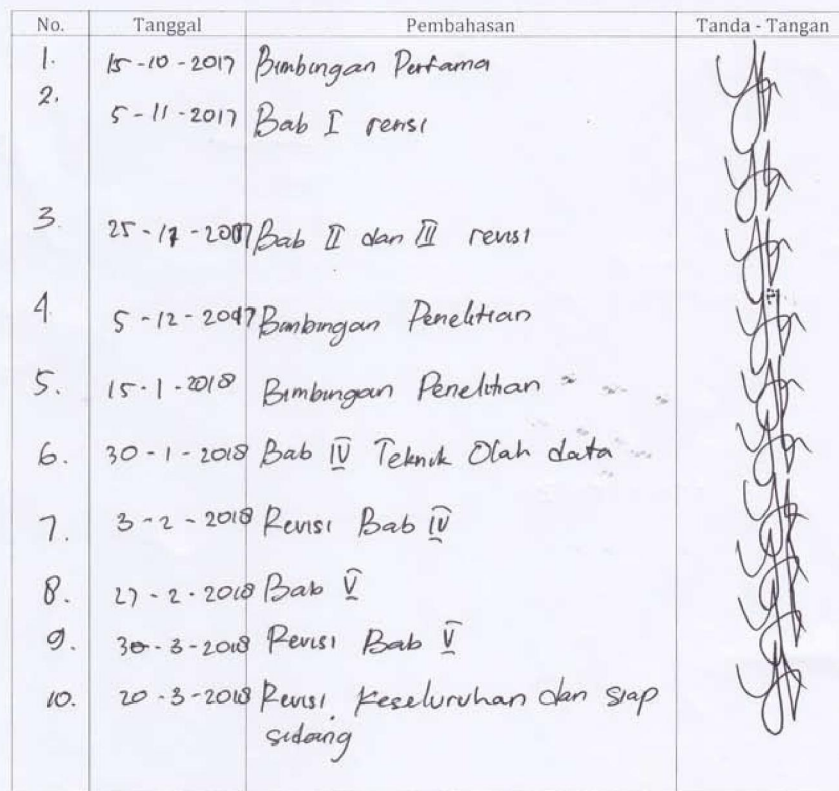 No. Tanggal Pembahasan Tanda - Tangan
1. 15-10-2017 Bimbingan Pertama
2. 5-11-2017 Bab I revisi
3. 25-11-2017 Bab II dan III revisi
4. 5-12-2017 Bimbingan Penelitian
5. 15-1-2018 Bimbingan Penelitian
6. 30-1-2018 Bab IV Teknik Olah data
7. 3-2-2018 Revisi Bab IV
8. 27-2-2018 Bab V
9. 30-3-2018 Revisi Bab V
10. 20-3-2018 Revisi Keseluruhan dan siap
sidang